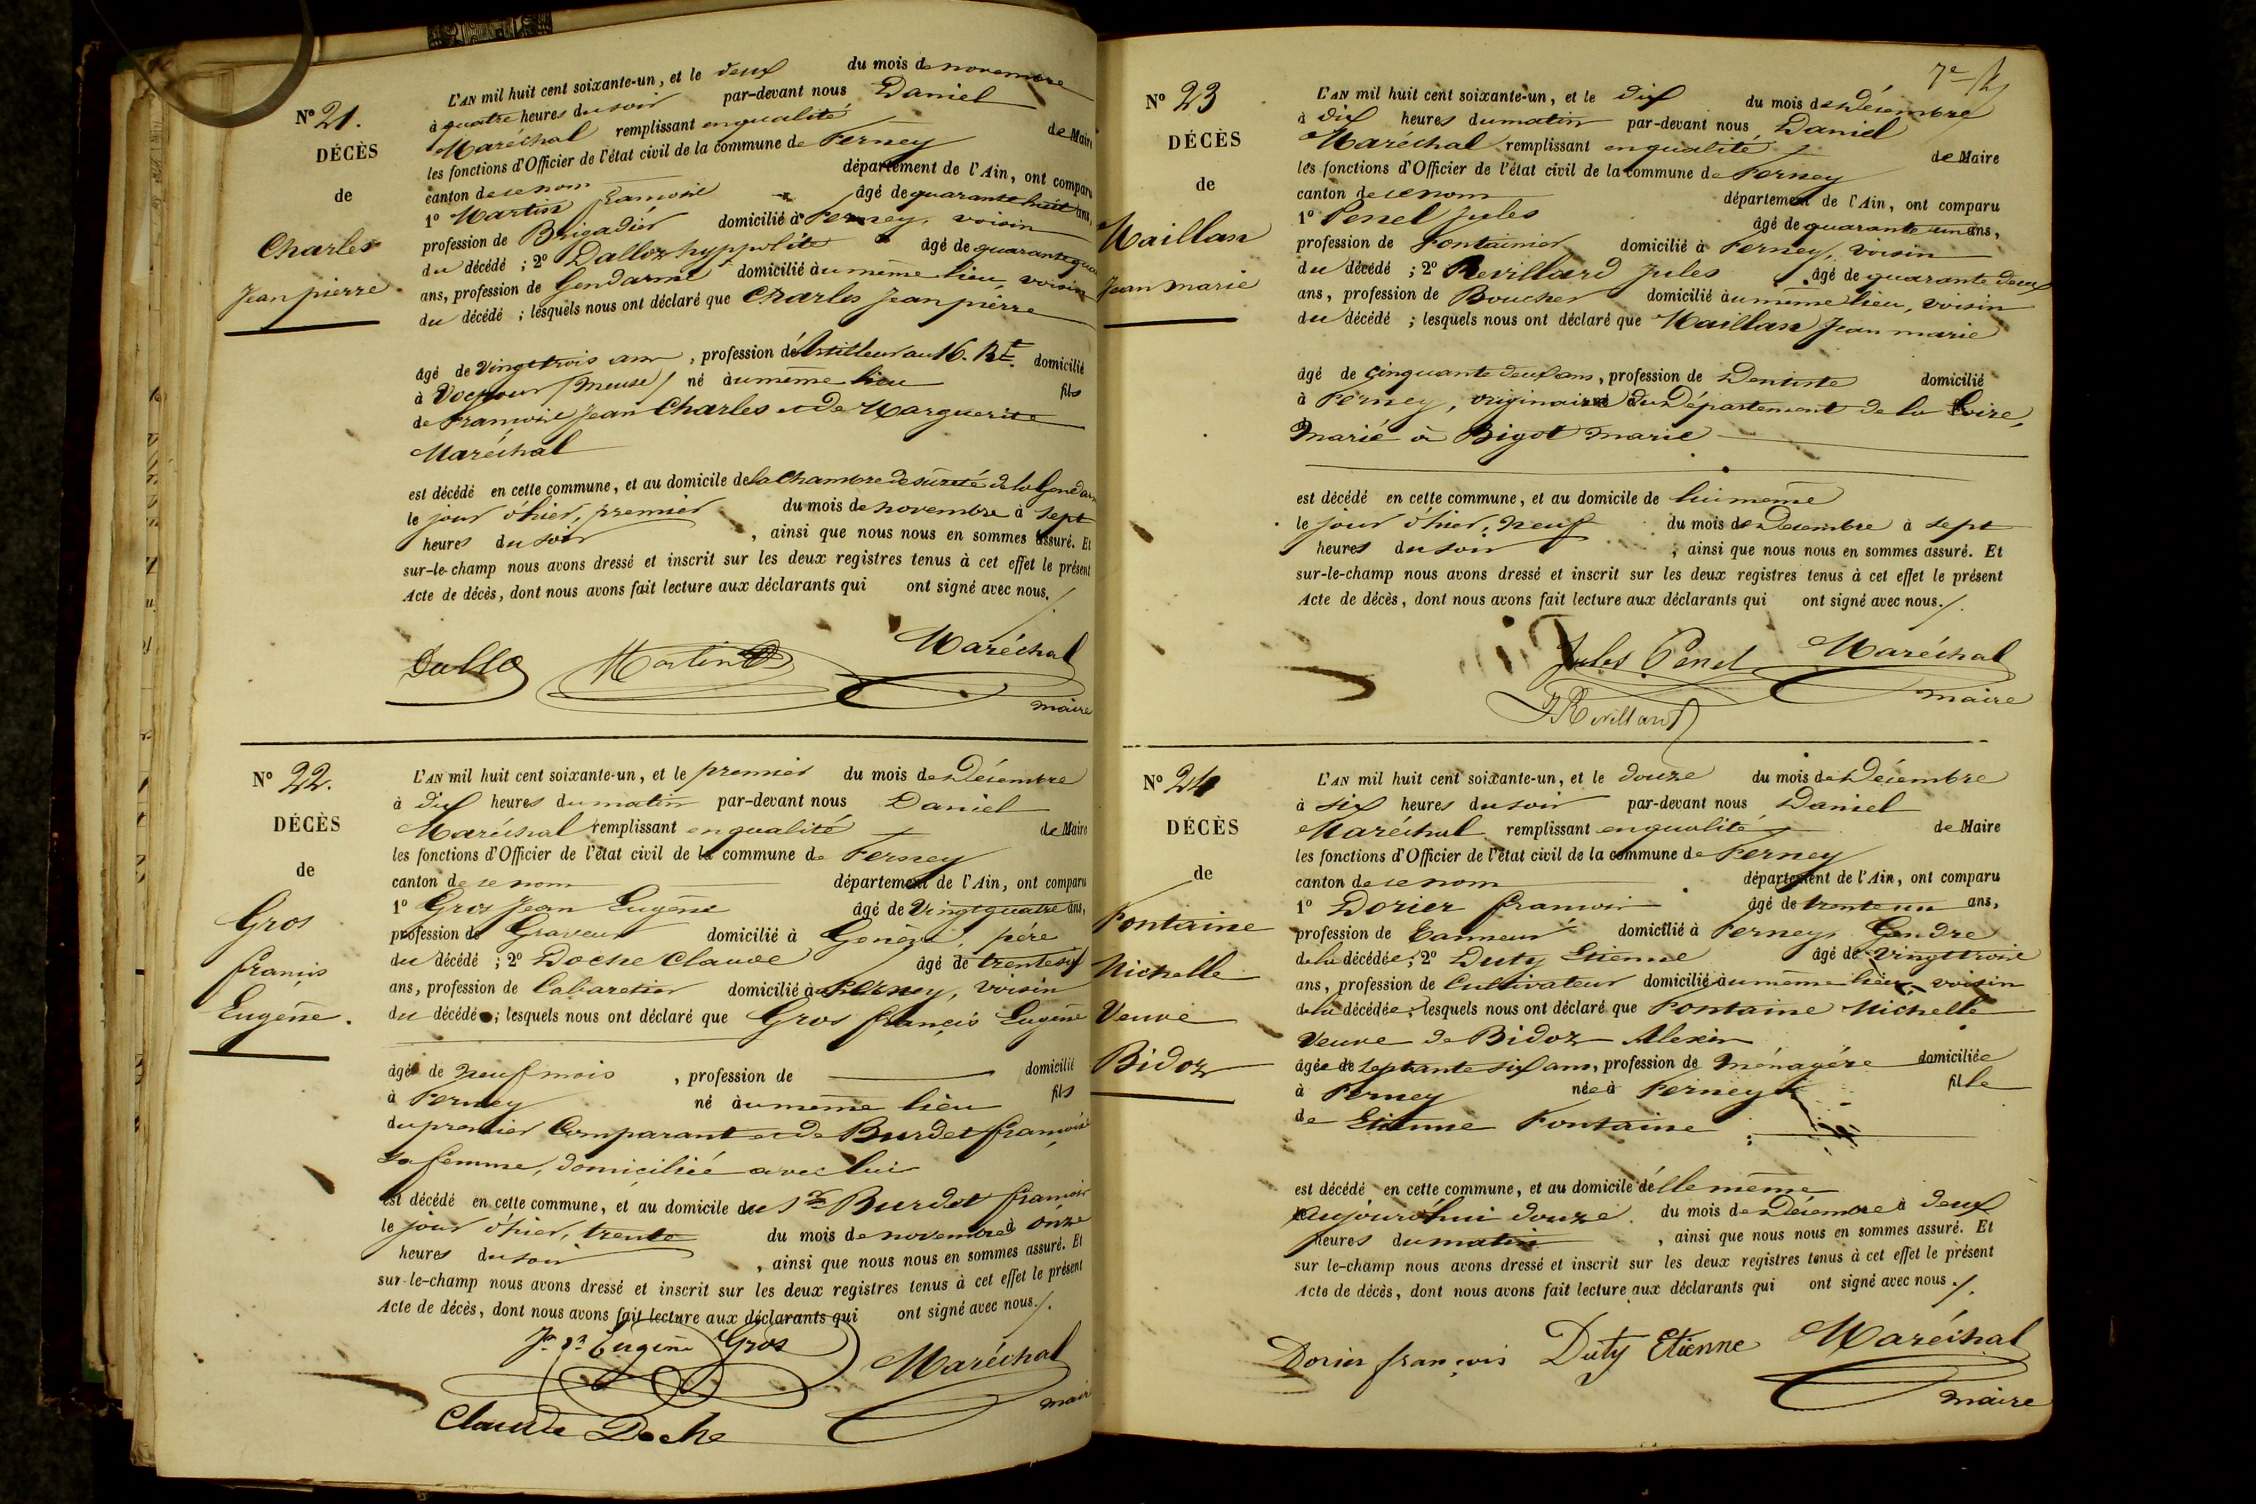 N° 21.
DÉCÈS
de
Charles
Jean pierre
L'AN mil huit cent soixante-un, et le deux du mois de novembre
à quatre heures du soir par-devant nous Daniel
Maréchal remplissant en qualité de Maire
les fonctions d'Officier de l'état civil de la commune de Ferney
canton de ce nom département de l'Ain, ont comparu
1° Martin françois âgé de quarante huit ans,
profession de Brigadier domicilié à Ferney, voisin
du décédé ; 2° Dalloz hyppolite âgé de quarante
ans, profession de Gendarme domicilié au même lieu, voisin
du décédé ; lesquels nous ont déclaré que Charles Jean pierre
âgé de vingt trois ans, profession d'Artilleur au 16. Rt domicilié
à (Meuse) né au même lieu fils
de françois Jean Charles et de Marguerite
Maréchal
est décédé en cette commune, et au domicile de la Chambre de sureté de la Gendar
le jour d'hier, premier du mois de novembre à sept
heures du soir, ainsi que nous nous en sommes assuré. Et
sur-le-champ nous avons dressé et inscrit sur les deux registres tenus à cet effet le présent
Acte de décès, dont nous avons fait lecture aux déclarants qui ont signé avec nous./.
Dalloz Martin Maréchal
maire
N° 22.
DÉCÈS
de
Gros
françis
Eugène.
L'AN mil huit cent soixante-un, et le premier du mois de Décembre
à dix heures du matin par-devant nous Daniel
Maréchal remplissant en qualité de Maire
les fonctions d'Officier de l'état civil de la commune de Ferney
canton de ce nom département de l'Ain, ont comparu
1° Gros Jean Eugène âgé de vingt quatre ans,
profession de Graveur domicilié à Genève, père
du décédé ; 2° Doche Claude âgé de trente six
ans, profession de Cabaretier domicilié à Ferney, voisin
du décédé ; lesquels nous ont déclaré que Gros françis Eugène
âgé de neuf mois, profession de domicilié
à Ferney né au même lieu fils
du premier Comparant et de Burdet françoise
sa femme, domiciliée avec lui
est décédé en cette commune, et au domicile du Sr Burdet françois
le jour d'hier, trente du mois de novembre à onze
heures du soir, ainsi que nous nous en sommes assuré. Et
sur-le-champ nous avons dressé et inscrit sur les deux registres tenus à cet effet le présent
Acte de décès, dont nous avons fait lecture aux déclarants qui ont signé avec nous./.
Eugène Gros Maréchal
maire
Claude Doche
7e
N° 23
DÉCÈS
de
Maillan
Jean marie
L'AN mil huit cent soixante-un, et le dix du mois de Décembre
à dix heures du matin par-devant nous Daniel
Maréchal remplissant en qualité de Maire
les fonctions d'Officier de l'état civil de la commune de Ferney
canton de ce nom département de l'Ain, ont comparu
1° Penel Jules âgé de quarante un ans,
profession de Fontainier domicilié à Ferney, voisin
du décédé ; 2° Revillard Jules âgé de quarante deux
ans, profession de Boucher domicilié au même lieu, voisin
du décédé ; lesquels nous ont déclaré que Maillan Jean marie
âgé de cinquante deux ans, profession de Dentiste domicilié
à Ferney, originaire du Département de la Loire,
marié à Bigot Marie
est décédé en cette commune, et au domicile de lui même
le jour d'hier, neuf du mois de Decembre à sept
heures du soir ; ainsi que nous nous en sommes assuré. Et
sur-le-champ nous avons dressé et inscrit sur les deux registres tenus à cet effet le présent
Acte de décès, dont nous avons fait lecture aux déclarants qui ont signé avec nous./.
Jules Penel Maréchal
maire
J Revillard
N° 24
DÉCÈS
de
Fontaine
Michelle
Veuve
Bidoz
L'AN mil huit cent soixante-un, et le douze du mois de Décembre
à six heures du soir par-devant nous Daniel
Maréchal remplissant en qualité de Maire
les fonctions d'Officier de l'état civil de la commune de Ferney
canton de ce nom département de l'Ain, ont comparu
1° Dorier françois âgé de trente un ans,
profession de Tanneur domicilié à Ferney, Gendre
de la décédée ; 2° Duty Etienne âgé de vingt trois
ans, profession de Cultivateur domicilié au même lieu, voisin
de la décédée ; lesquels nous ont déclaré que Fontaine Michelle
veuve de Bidoz Alexis
âgée de septante six ans, profession de ménagère domiciliée
à Ferney née à Ferney fille
de Etienne Fontaine
est décédé en cette commune, et au domicile d'elle même
aujourd'hui douze du mois de Décembre à deux
heures du matin, ainsi que nous nous en sommes assuré. Et
sur le-champ nous avons dressé et inscrit sur les deux registres tenus à cet effet le présent
Acte de décès, dont nous avons fait lecture aux déclarants qui ont signé avec nous./.
Dorier françois Duty Etienne Maréchal
maire